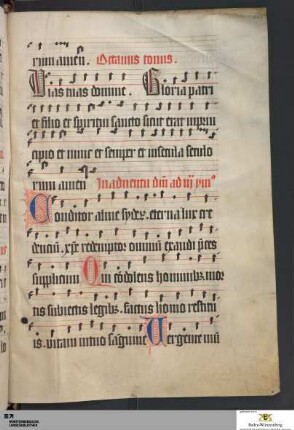 rum amen. Octauus tonus.
Vias tuas domine. Gloria patri
et filio et spiritui sancto sicut erat in prin
cipio et nunc et semper et in secula seculo
rum amen In aduentu dni ad
Conditor alme syderum eterna lux cre
dencium xpe redemptor omnium exaudi preces
supplicum Qui condolens hominibus mor
tis subiectis legibus factus homo restitu
is. vitam